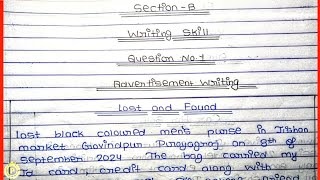 Section-B
Writing Skill
Question No.1
Advertisement Writing
Lost and Found
Lost black coloured men's purse in
market Govindpur Prayagraj on 8th of
September 2024 The bag carried my
card, credit card along with